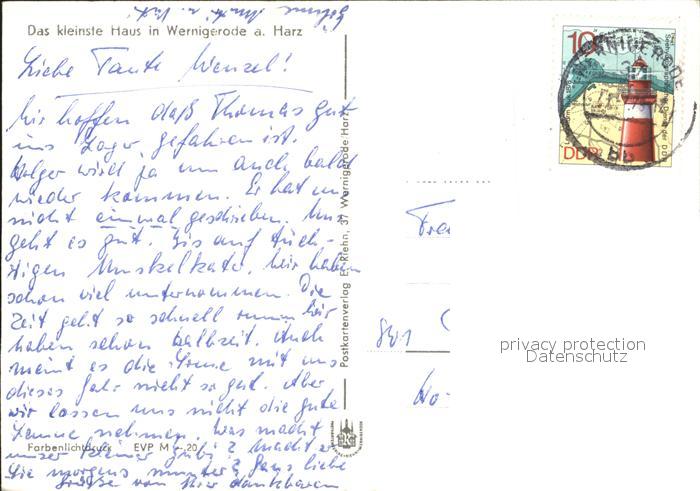 Das kleinste Haus in Wernigerode a. Harz
Liebe Tante Wenzel!
Wir hoffen daß Thomas gut
ins Lager gefahren ist.
Holger wird ja nun auch bald
wieder kommen. Er hat uns
nicht einmal geschrieben. Uns
geht es gut. Bis auf tüch-
tigen Muskelkater. Wir haben
schon viel unternommen. Die
Zeit geht so schnell rum. Wir
haben schon Halbzeit. Auch
meint es die Sonne mit uns
dieses Jahr nicht so gut. Aber
wir lassen uns nicht die gute
Laune nehmen. Was macht
unser kleiner ? Macht er
Sie morgens munter? Ganz liebe
Grüße von Ihrer dankbaren
Farbenlichtdruck EVP M -,20
Postkartenverlag E. Riehn, 37 Wernigerode/Harz
10
DDR
WERNIGERODE
Frau
privacy protection
Datenschutz